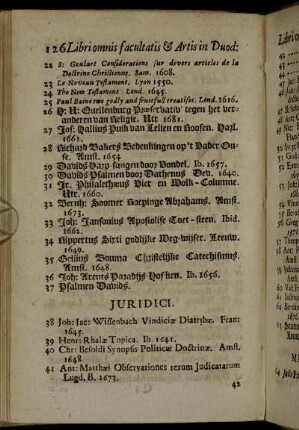 126 Libri omnis facultatis & Artis in Duod:
22 S: Goulart Considerations sur devers articles de la
Doctrine Chrestienne. Sam. 1608.
23 Le Noveau Testament. Lyon 1550.
24 The New Testament. Lond. 1645.
25 Paul Baine two godly and fruitfull treatises. Lond. 1616.
26 H: H: Quellenburg Præservatif tegen het ver-
anderen van Religie. Utr 1681.
27 Joh: Hallius Pulk van Telien en Roosen. Harl.
1661.
28 Richard Bakers Bedenkingen op't Vader On-
se. Amst. 1654
29 Davids Harpsangen door Vondel. Ib. 1657.
30 Davids Psalmen door Dathenus Dev. 1640
31 Ir. Philaletheus Vier en Wolk-Columne.
Utr. 1660.
32 Bernh: Soomer Goepinge Abrahams. Amst.
1673.
33 Joh: Jansonius Apostolise Toet-steen. Ibid.
1662.
34 Rippertus Sixti godlijke Weg-wijser. Leeuw.
1649.
35 Gellius Bouma Christelijke Catechismus.
Amst. 1648.
36 Joh: Arents Paradijs Hofken. Ib. 1656.
37 Psalmen Davids.
JURIDICI.
38 Joh: Jac: Wissenbach Vindiciæ Diatribæ. Fran:
1645.
39 Honr: Rhalæ Topica. Ib. 1641.
40 Chr: Besoldi Synopsis Politicæ Doctrinæ. Amst.
1648.
41 Ant: Matthæi Observationes rerum Judicatarum
Lugd. B. 1673.
42